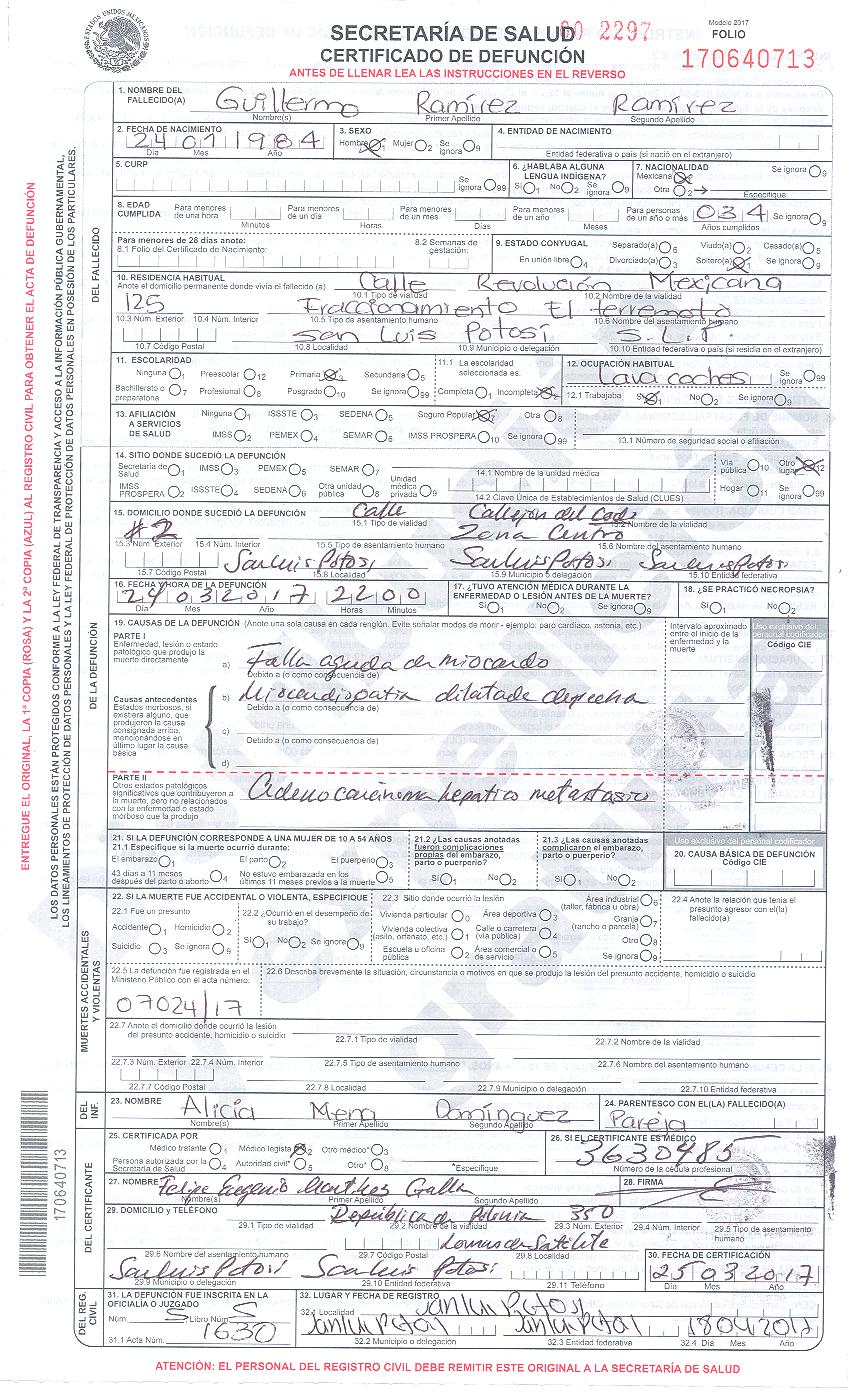 SECRETARÍA DE SALUD
CERTIFICADO DE DEFUNCIÓN
ANTES DE LLENAR LEA LAS INSTRUCCIONES EN EL REVERSO
2297
Modelo 2017
FOLIO
170640713
ESTADOS UNIDOS MEXICANOS
ENTREGUE EL ORIGINAL, LA 1ª COPIA (ROSA) Y LA 2ª COPIA (AZUL) AL REGISTRO CIVIL PARA OBTENER EL ACTA DE DEFUNCIÓN
LOS DATOS PERSONALES ESTÁN PROTEGIDOS CONFORME A LA LEY FEDERAL DE TRANSPARENCIA Y ACCESO A LA INFORMACIÓN PÚBLICA GUBERNAMENTAL,
LOS LINEAMIENTOS DE PROTECCIÓN DE DATOS PERSONALES Y LA LEY FEDERAL DE PROTECCIÓN DE DATOS PERSONALES EN POSESIÓN DE LOS PARTICULARES.
DEL FALLECIDO
1. NOMBRE DEL FALLECIDO(A) Guillermo Ramírez Ramírez
Nombre(s) Primer Apellido Segundo Apellido
2. FECHA DE NACIMIENTO 3. SEXO 4. ENTIDAD DE NACIMIENTO
24 07 1984 Hombre 1 Mujer 2 Se ignora 9
Día Mes Año Entidad federativa o país (si nació en el extranjero)
5. CURP Se ignora 99 6. ¿HABLABA ALGUNA LENGUA INDÍGENA? Sí 1 No 2 Se ignora 9 7. NACIONALIDAD Mexicana 1 Otra 2 Especifique Se ignora 9
8. EDAD CUMPLIDA Para menores de una hora Minutos Para menores de un día Horas Para menores de un mes Días Para menores de un año Meses Para personas de un año o más 034 Años cumplidos Se ignora 9
Para menores de 28 días anote: 8.2 Semanas de gestación: 9. ESTADO CONYUGAL Separado(a) 6 Viudo(a) 2 Casado(a) 5
6.1 Folio del Certificado de Nacimiento: En unión libre 4 Divorciado(a) 3 Soltero(a) 1 Se ignora 9
10. RESIDENCIA HABITUAL Calle Revolución Mexicana
Anote el domicilio permanente donde vivía el fallecido (a) 10.1 Tipo de vialidad 10.2 Nombre de la vialidad
125 Fraccionamiento El terremoto
10.3 Núm. Exterior 10.4 Núm. Interior 10.5 Tipo de asentamiento humano 10.6 Nombre del asentamiento humano
San Luis Potosí S.L.P.
10.7 Código Postal 10.8 Localidad 10.9 Municipio o delegación 10.10 Entidad federativa o país (si residía en el extranjero)
11. ESCOLARIDAD 11.1 La escolaridad seleccionada es: 12. OCUPACIÓN HABITUAL
Ninguna 1 Preescolar 12 Primaria 3 Secundaria 5 Lava coches Se ignora 99
Bachillerato o preparatoria 7 Profesional 8 Posgrado 10 Se ignora 99 Completa 1 Incompleta 2 12.1 Trabajaba Sí 1 No 2 Se ignora 9
13. AFILIACIÓN A SERVICIOS DE SALUD Ninguna 1 ISSSTE 3 SEDENA 5 Seguro Popular 7 Otra 8
IMSS 2 PEMEX 4 SEMAR 6 IMSS PROSPERA 10 Se ignora 99 13.1 Número de seguridad social o afiliación
DE LA DEFUNCIÓN
14. SITIO DONDE SUCEDIÓ LA DEFUNCIÓN
Secretaría de Salud 1 IMSS 3 PEMEX 5 SEMAR 7 Unidad médica privada 9 14.1 Nombre de la unidad médica Vía pública 10 Otro lugar 12
IMSS PROSPERA 2 ISSSTE 4 SEDENA 6 Otra unidad pública 8 14.2 Clave Única de Establecimientos de Salud (CLUES) Hogar 11 Se ignora 99
15. DOMICILIO DONDE SUCEDIÓ LA DEFUNCIÓN Calle Callejón del Codo
15.1 Tipo de vialidad 15.2 Nombre de la vialidad
#2 Zona Centro
15.3 Núm. Exterior 15.4 Núm. Interior 15.5 Tipo de asentamiento humano 15.6 Nombre del asentamiento humano
San Luis Potosí San Luis Potosí San Luis Potosí
15.7 Código Postal 15.8 Localidad 15.9 Municipio o delegación 15.10 Entidad federativa
16. FECHA Y HORA DE LA DEFUNCIÓN 17. ¿TUVO ATENCIÓN MÉDICA DURANTE LA ENFERMEDAD O LESIÓN ANTES DE LA MUERTE? 18. ¿SE PRACTICÓ NECROPSIA?
24 03 2017 22 00 Sí 1 No 2 Se ignora 9 Sí 1 No 2
Día Mes Año Horas Minutos
19. CAUSAS DE LA DEFUNCIÓN (Anote una sola causa en cada renglón. Evite señalar modos de morir - ejemplo: paro cardíaco, astenia, etc.)
Intervalo aproximado entre el inicio de la enfermedad y la muerte
Uso exclusivo del personal codificador
Código CIE
PARTE I
Enfermedad, lesión o estado patológico que produjo la muerte directamente
a) Falla aguda de miocardio
Debido a (o como consecuencia de)
Causas antecedentes
Estados morbosos, si existiera alguno, que produjeron la causa consignada arriba, mencionándose en último lugar la causa básica
b) Miocardiopatia dilatada derecha
Debido a (o como consecuencia de)
c)
Debido a (o como consecuencia de)
d)
PARTE II
Otros estados patológicos significativos que contribuyeron a la muerte, pero no relacionados con la enfermedad o estado morboso que la produjo
Adenocarcinoma hepatico metastasis
21. SI LA DEFUNCIÓN CORRESPONDE A UNA MUJER DE 10 A 54 AÑOS
21.1 Especifique si la muerte ocurrió durante:
El embarazo 1 El parto 2 El puerperio 3
43 días a 11 meses después del parto o aborto 4 No estuvo embarazada en los últimos 11 meses previos a la muerte 5
21.2 ¿Las causas anotadas fueron complicaciones propias del embarazo, parto o puerperio? Sí 1 No 2
21.3 ¿Las causas anotadas complicaron el embarazo, parto o puerperio? Sí 1 No 2
Uso exclusivo del personal codificador
20. CAUSA BÁSICA DE DEFUNCIÓN
Código CIE
MUERTES ACCIDENTALES Y VIOLENTAS
22. SI LA MUERTE FUE ACCIDENTAL O VIOLENTA, ESPECIFIQUE
22.1 Fue un presunto
Accidente 1 Homicidio 2
Suicidio 3 Se ignora 9
22.2 ¿Ocurrió en el desempeño de su trabajo?
Sí 1 No 2 Se ignora 9
22.3 Sitio donde ocurrió la lesión
Vivienda particular 0 Área deportiva 3 Área industrial (taller, fábrica u obra) 6
Vivienda colectiva (asilo, orfanato, etc.) 1 Calle o carretera (vía pública) 4 Granja (rancho o parcela) 7
Escuela u oficina pública 2 Área comercial o de servicio 5 Otro 8 Se ignora 9
22.4 Anote la relación que tenía el presunto agresor con el(la) fallecido(a)
22.5 La defunción fue registrada en el Ministerio Público con el acta número:
07024/17
22.6 Describa brevemente la situación, circunstancia o motivos en que se produjo la lesión del presunto accidente, homicidio o suicidio
22.7 Anote el domicilio donde ocurrió la lesión del presunto accidente, homicidio o suicidio
22.7.1 Tipo de vialidad 22.7.2 Nombre de la vialidad
22.7.3 Núm. Exterior 22.7.4 Núm. Interior 22.7.5 Tipo de asentamiento humano 22.7.6 Nombre del asentamiento humano
22.7.7 Código Postal 22.7.8 Localidad 22.7.9 Municipio o delegación 22.7.10 Entidad federativa
DEL INF.
23. NOMBRE Alicia Mena Domínguez 24. PARENTESCO CON EL(LA) FALLECIDO(A)
Nombre(s) Primer Apellido Segundo Apellido Pareja
DEL CERTIFICANTE
25. CERTIFICADA POR
Médico tratante 1 Médico legista 2 Otro médico* 3
Persona autorizada por la Secretaría de Salud 4 Autoridad civil* 5 Otro* 8 *Especifique
26. SI EL CERTIFICANTE ES MÉDICO
3630485
Número de la cédula profesional
27. NOMBRE Felipe Eugenio
Nombre(s) Primer Apellido Segundo Apellido
28. FIRMA
29. DOMICILIO Y TELÉFONO República de Polonia 350
29.1 Tipo de vialidad 29.2 Nombre de la vialidad 29.3 Núm. Exterior 29.4 Núm. Interior 29.5 Tipo de asentamiento humano
Lomas de Satélite
29.6 Nombre del asentamiento humano 29.7 Código Postal 29.8 Localidad
San Luis Potosí San Luis Potosí
29.9 Municipio o delegación 29.10 Entidad federativa 29.11 Teléfono
30. FECHA DE CERTIFICACIÓN
25 03 2017
Día Mes Año
DEL REG. CIVIL
31. LA DEFUNCIÓN FUE INSCRITA EN LA OFICIALÍA O JUZGADO
Núm. 5 Libro Núm. 5
31.1 Acta Núm. 1630
32. LUGAR Y FECHA DE REGISTRO
32.1 Localidad San Luis Potosí
San Luis Potosí San Luis Potosí 18 04 2017
32.2 Municipio o delegación 32.3 Entidad federativa 32.4 Día Mes Año
170640713
ATENCIÓN: EL PERSONAL DEL REGISTRO CIVIL DEBE REMITIR ESTE ORIGINAL A LA SECRETARÍA DE SALUD